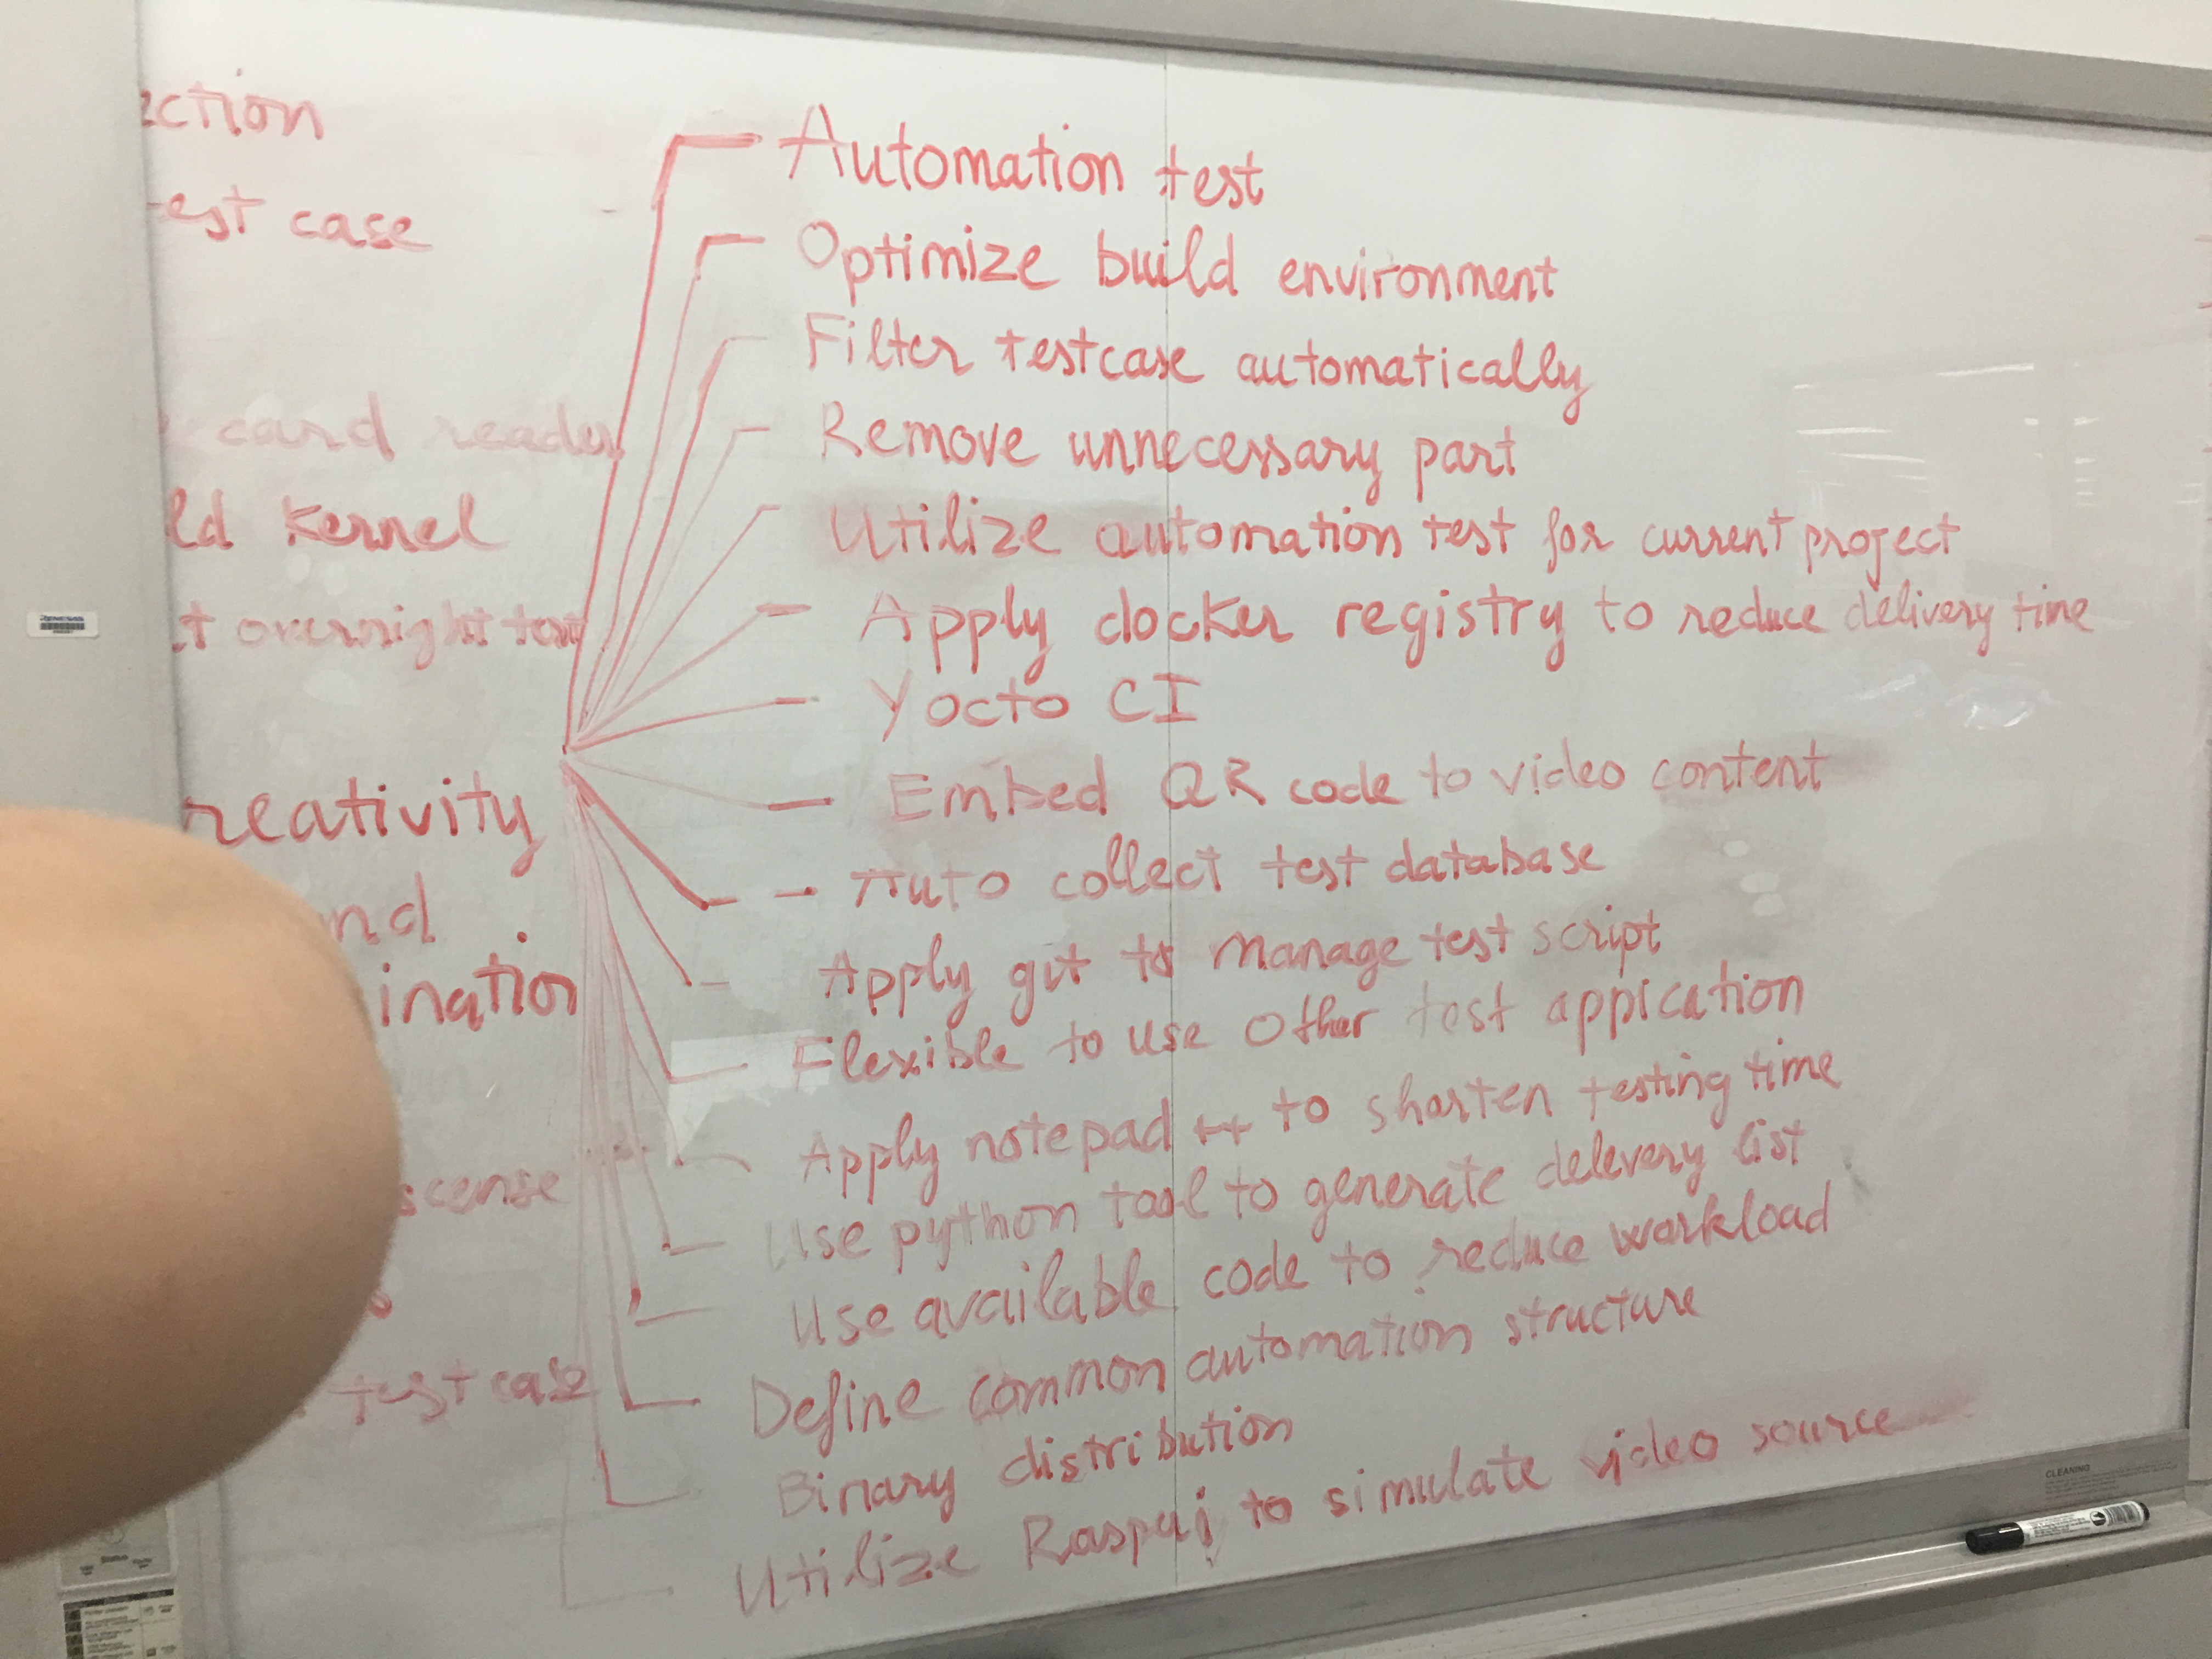 ection
test case
card reader
ld Kernel
t overnight test
reativity
nd
ination
scense
test case
Automation test
Optimize build environment
Filter testcase automatically
Remove unnecessary part
Utilize automation test for current project
Apply docker registry to reduce delivery time
Yocto CI
Embed QR code to video content
Auto collect test database
Apply git to manage test script
Flexible to use other test appication
Apply notepad ++ to shorten testing time
Use python tool to generate delevery list
Use available code to reduce workload
Define common automation structure
Binary distribution
Utilize Raspi to simulate video source
CLEANING